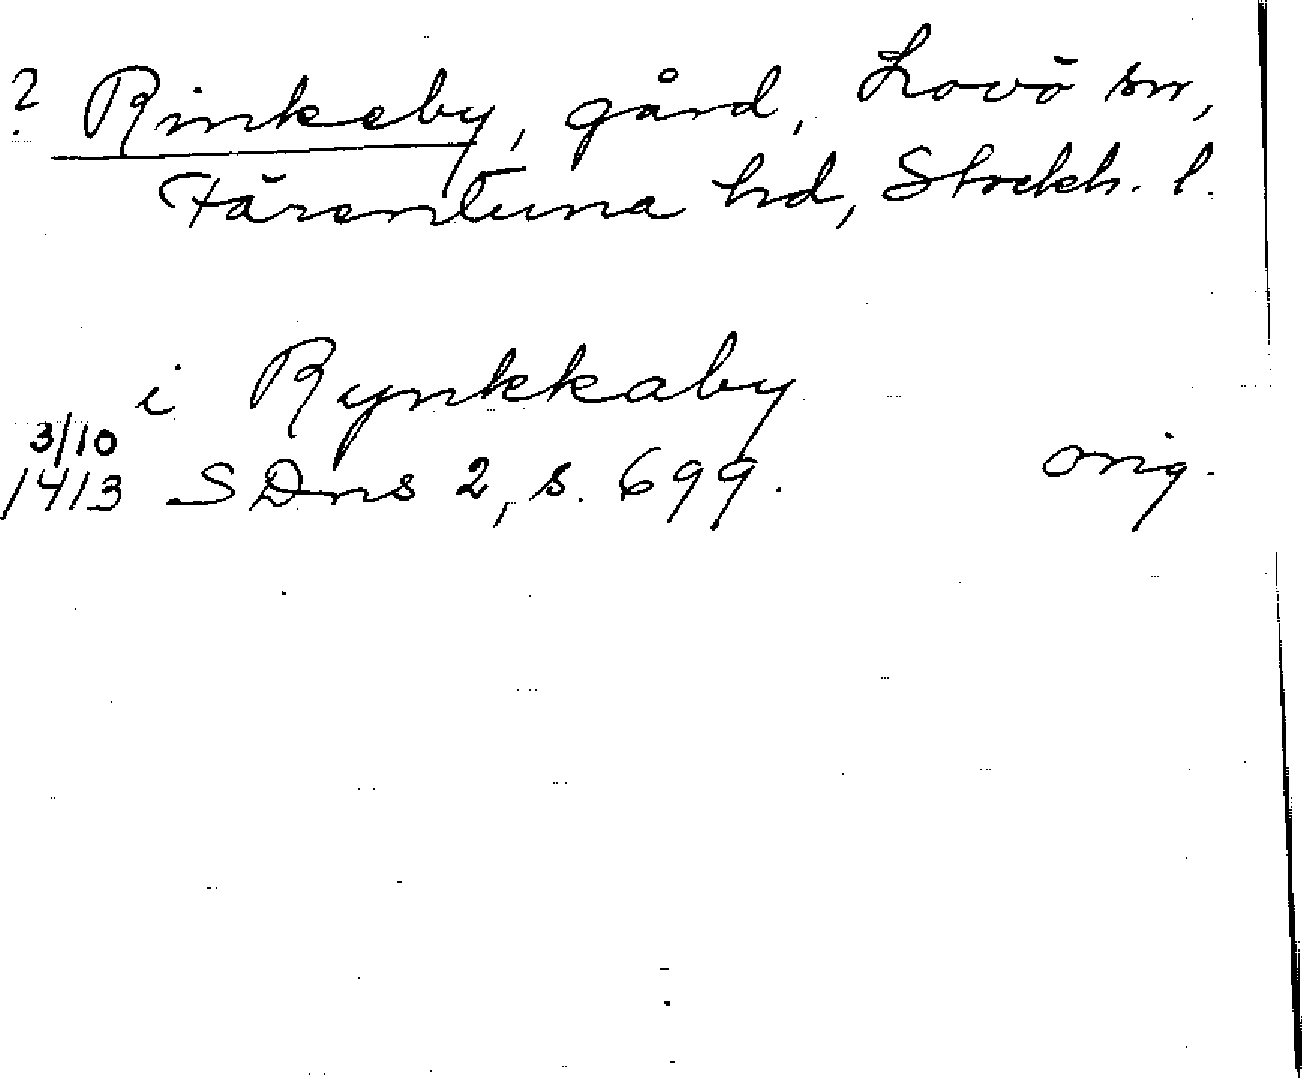 ? Rinkeby, gård, Lovö sn,
Färentuna hd, Stockh. l.
i Rynkkaby
3/10
1413 SDns 2, s. 699. orig.